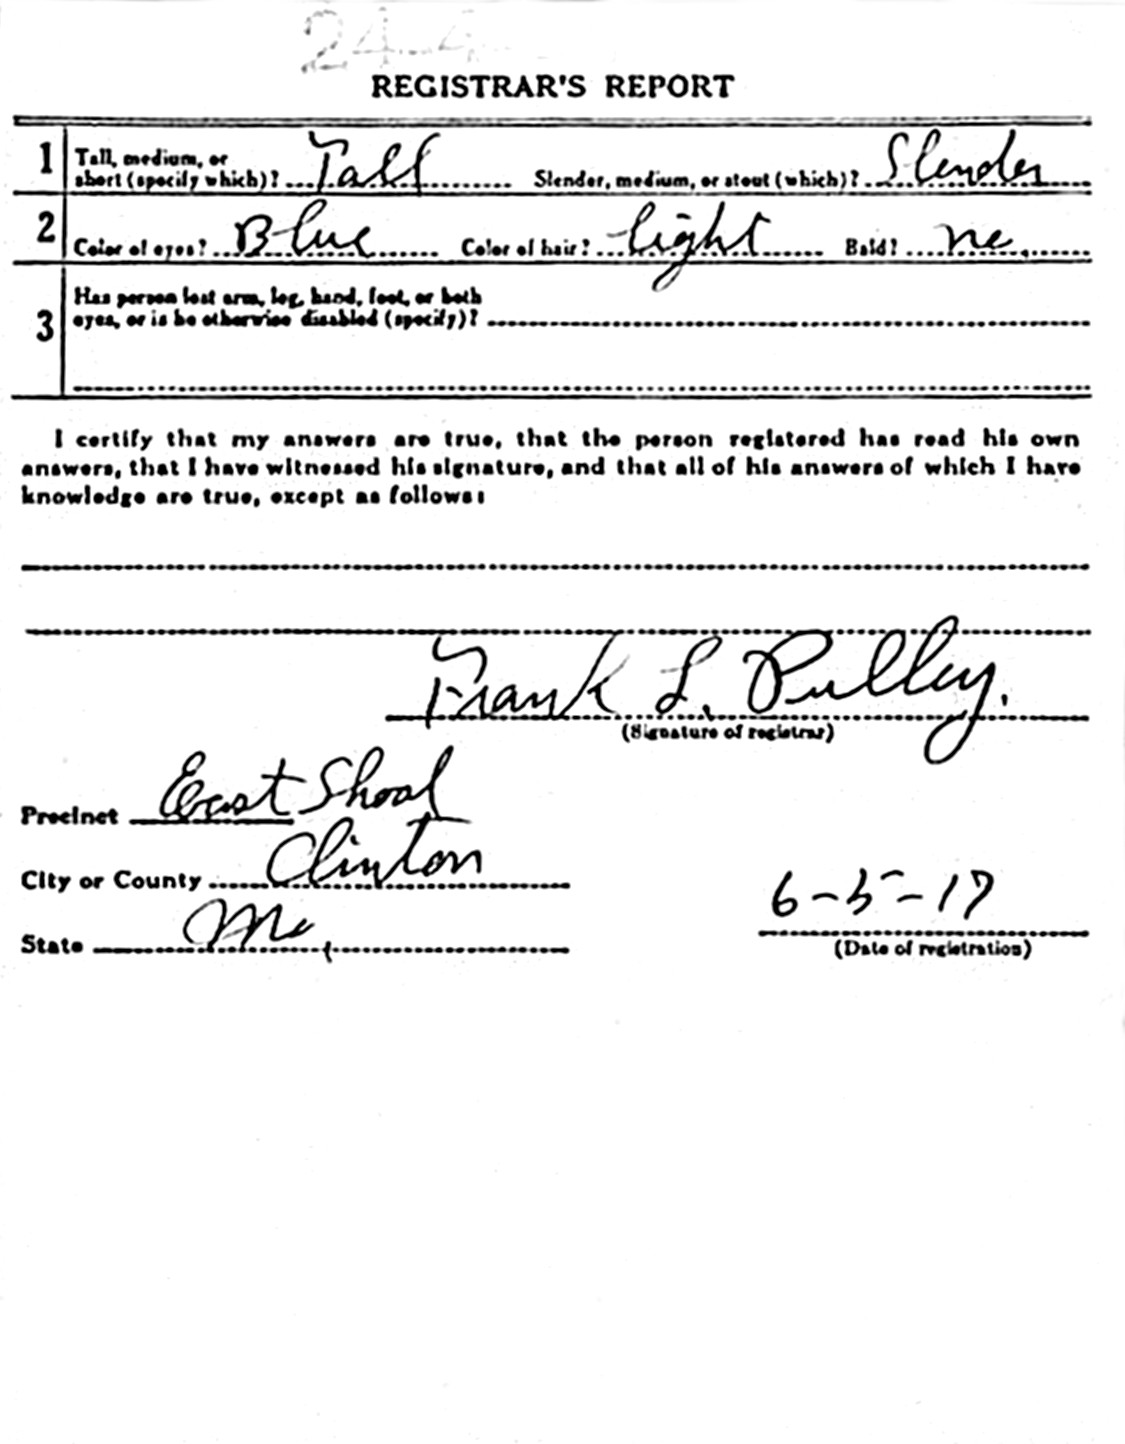 24-4
REGISTRAR'S REPORT
1 Tall, medium, or
short (specify which)? Tall Slender, medium, or stout (which)? Slender
2 Color of eyes? Blue Color of hair? light Bald? no
3 Has person lost arm, leg, hand, foot, or both
eyes, or is he otherwise disabled (specify)?
I certify that my answers are true, that the person registered has read his own
answers, that I have witnessed his signature, and that all of his answers of which I have
knowledge are true, except as follows:
Frank L. Pulley.
(Signature of registrar)
Precinct East Shoal
City or County Clinton
State Mo,
6-5-17
(Date of registration)